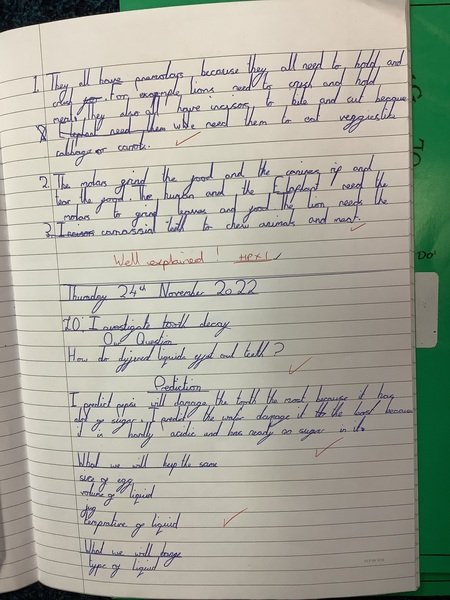 1. They all have premolars because they all need to hold and
crush for. For example lions need to crush and hold
meat. They also all have incisors to bite and cut because
Elephant need them we need them to eat veggies like
cabbage or carrots.
2. The molars grind the food and the canines rip and
tear the food. The human and the Elephant need the
molars to grind leaves and food the lion needs the
3. carnassial teeth to chew animals and meat.
Well explained! HPx1
Thursday 24th November 2022
LO: Investigate tooth decay
Our Question
How do different liquids effect our teeth?
Prediction
I predict pepsi will damage the tooth the most because it has
alot of sugar. I predict the water damage it to the least because
it is hardly acidic and has really no sugar in it.
What we will keep the same
size of egg
volume of liquid
jug
temprature of liquid
What we will change
type of liquid